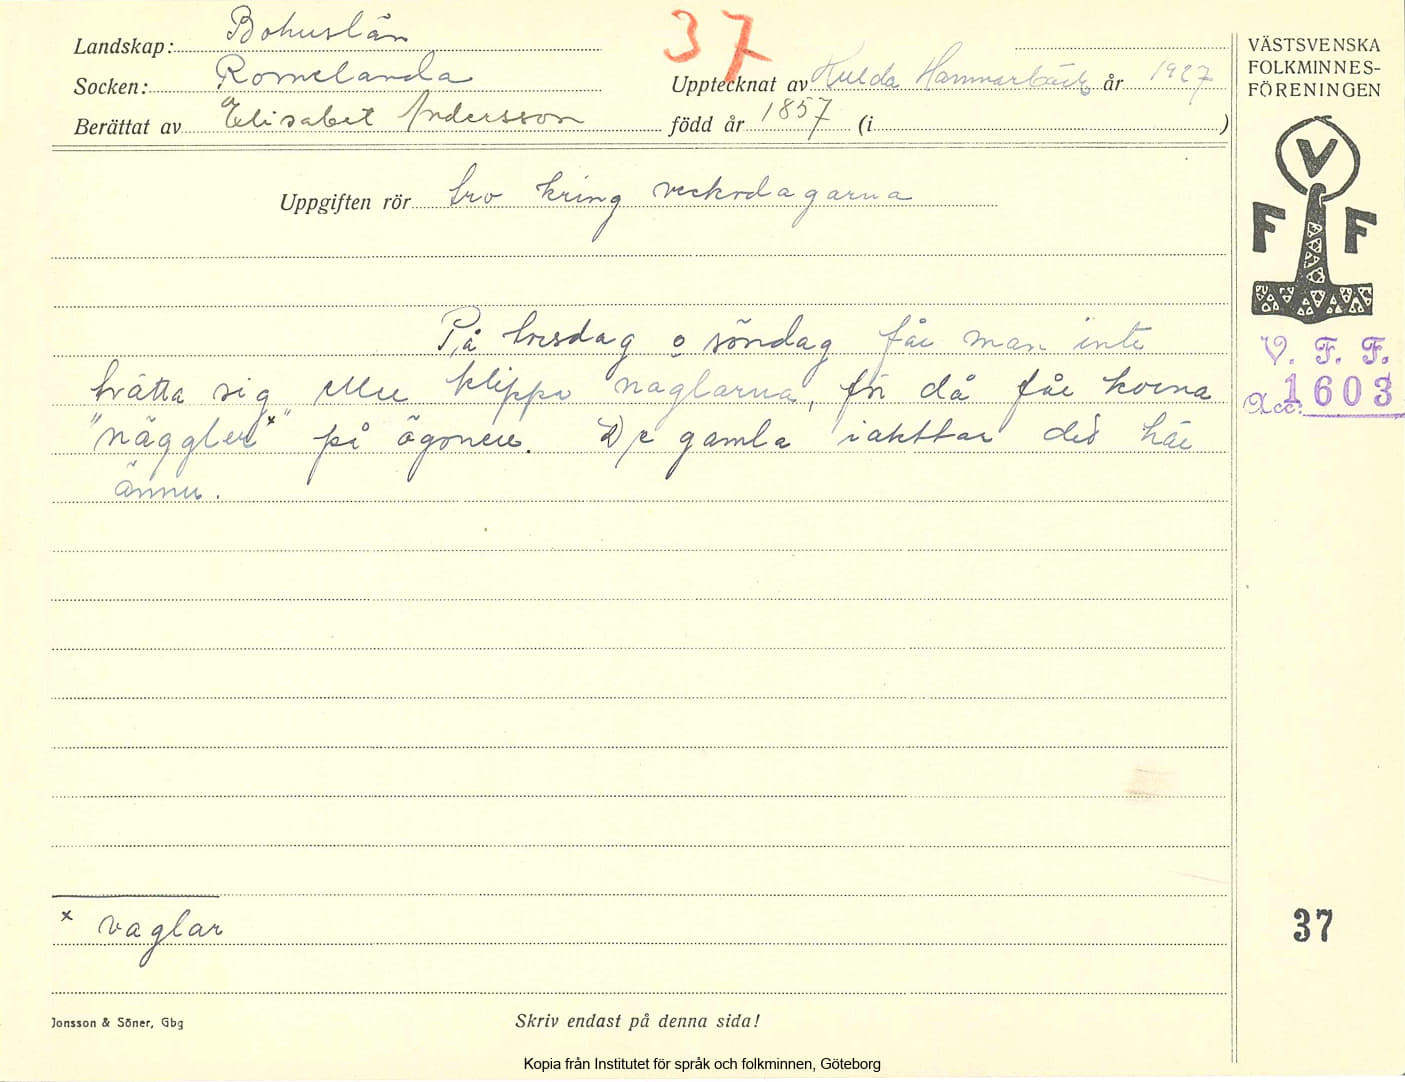 37
Landskap: Bohuslän
Socken: Romelanda
Upptecknat av Hulda Hammarbäck år 1927
Berättat av Elisabet Andersson född år 1857 (i )
VÄSTSVENSKA
FOLKMINNES-
FÖRENINGEN
V
F F
Uppgiften rör tro kring veckodagarna
V. F. F.
Acc: 1603
På torsdag o söndag får man inte
tvätta sig eller klippa naglarna, för då får korna
"näggler"x på ögonen. De gamla iakttar det här
ännu.
x vaglar
37
Jonsson & Söner, Gbg
Skriv endast på denna sida!
Kopia från Institutet för språk och folkminnen, Göteborg